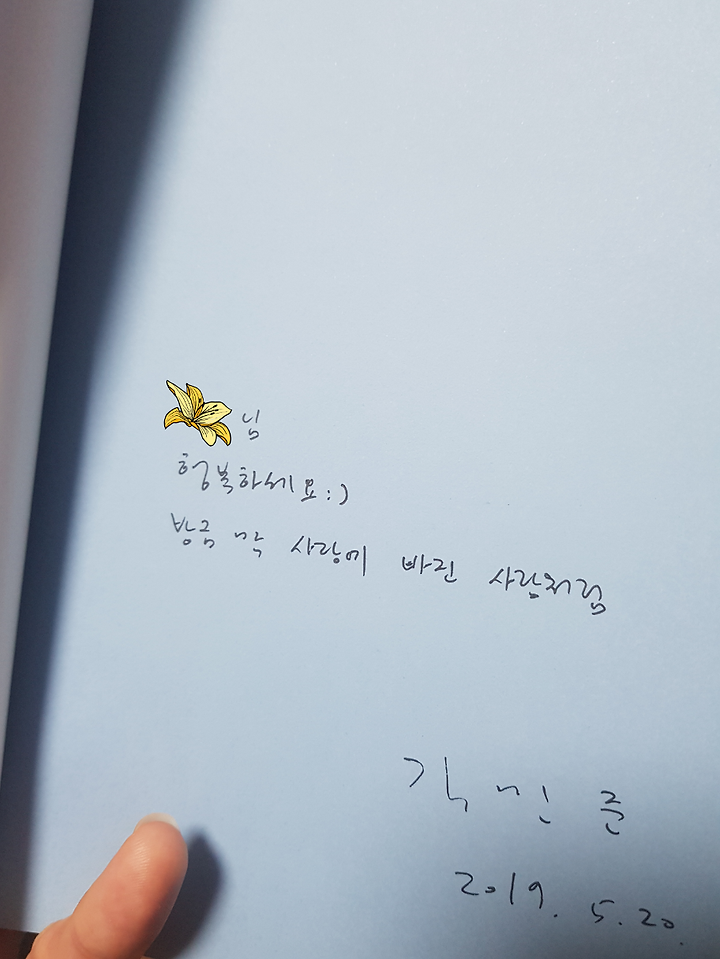 님
행복하세요:)
방금 막 사랑에 빠진 사람처럼
김민준
2019. 5. 20.